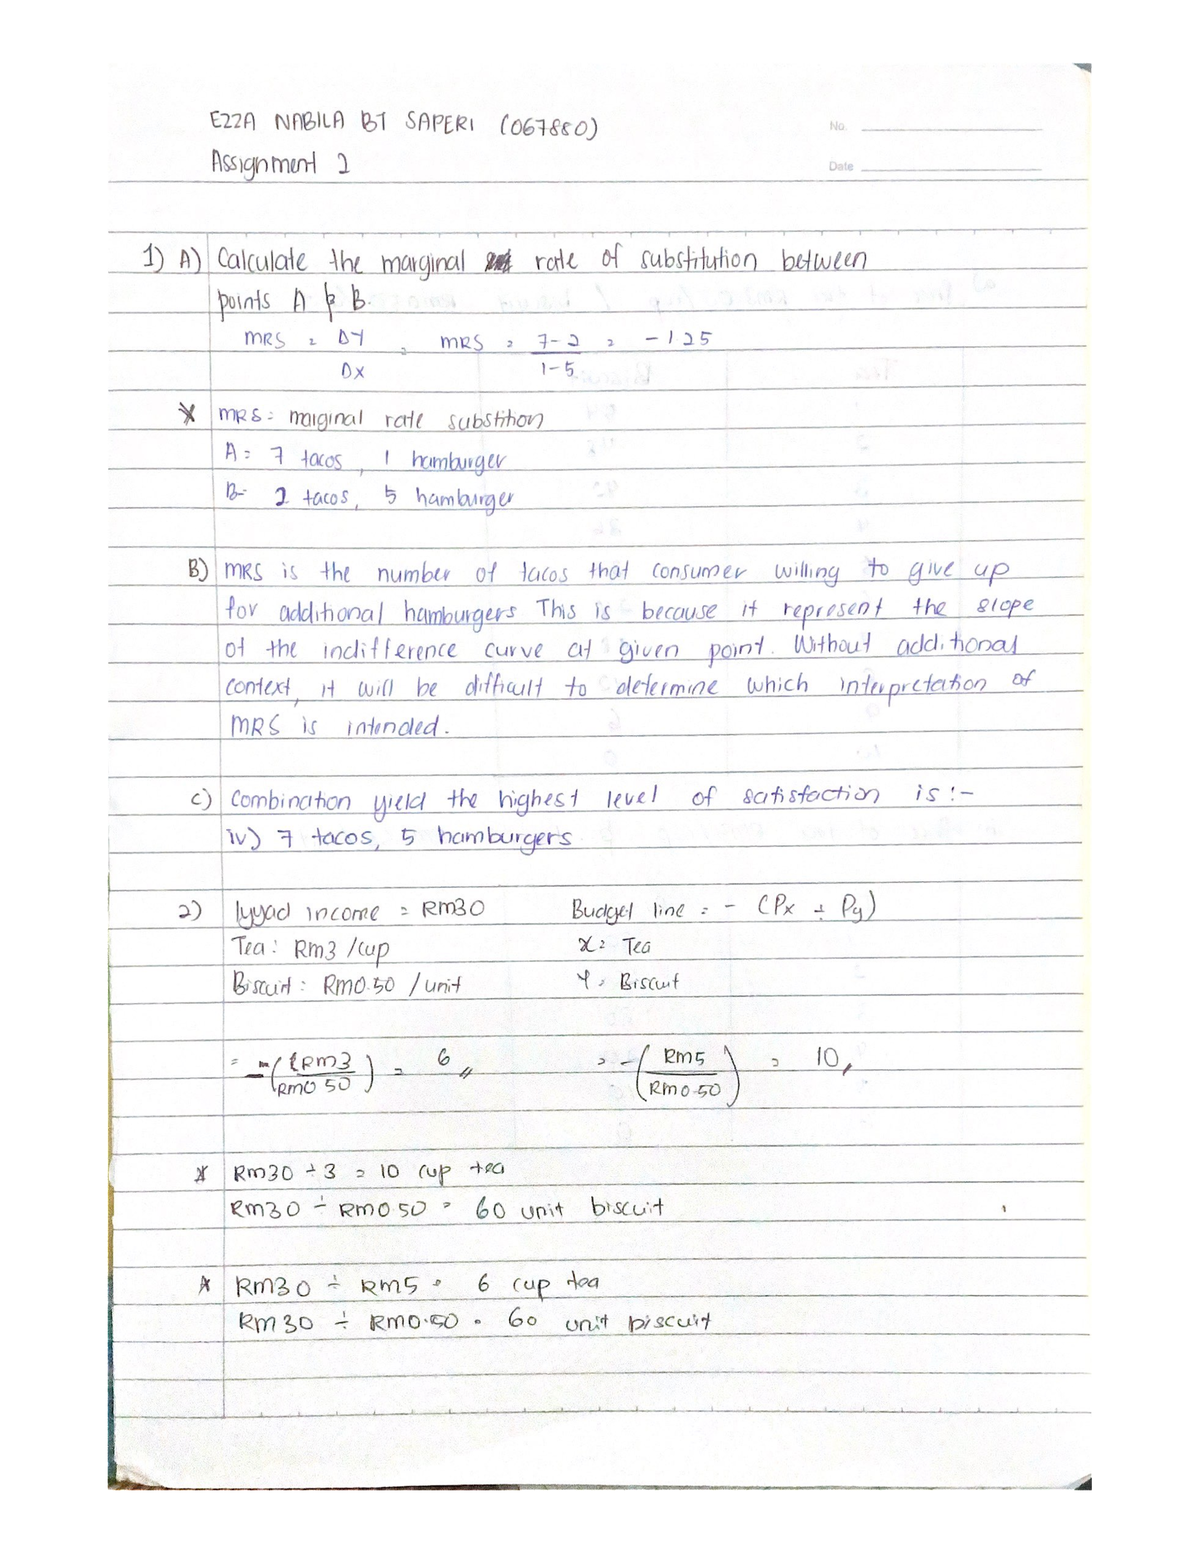 EZZA NABILA BT SAPERI (067880)
No.
Assignment 2
Date
1) A) Calculate the marginal rate of substitution between
points A & B.
MRS = ΔY , MRS = 7-2 = -1.25
ΔX 1-5
* MRS = marginal rate substition
A = 7 tacos, 1 hamburger
B- 2 tacos, 5 hamburger
B) MRS is the number of tacos that consumer willing to give up
for additional hamburgers This is because it represent the slope
of the indifference curve at given point. Without additional
context, it will be difficult to determine which interpretation of
MRS is intended.
c) Combination yield the highest level of satisfaction is :-
iv) 7 tacos, 5 hamburgers
2) Iyyad income = RM30 Budget line = - (Px ÷ Py)
Tea : RM3 /cup x = Tea
Biscuit : RM0.50 / unit Y = Biscuit
= -(RM3 / RM0.50) = 6 = -(RM5 / RM0.50) = 10
* RM30 ÷ 3 = 10 cup tea
RM30 ÷ RM0.50 = 60 unit biscuit
* RM30 ÷ RM5 = 6 cup tea
RM30 ÷ RM0.50 = 60 unit biscuit